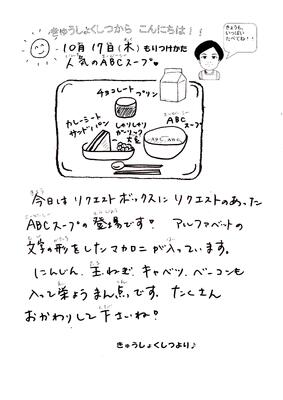 きゅうしょくしつから こんにちは！！
10月17日(木) もりつけかた
人気のABCスープ♥
きょうも、
いっぱい
たべてね！！
チョコレートプリン
カレーミート
サンドパン
しゃりしゃり
ガーリック
大豆
ABC
スープ
今日はリクエストボックスにリクエストのあった
ABCスープの登場です！ アルファベットの
文字の形をしたマカロニが入っています。
にんじん、玉ねぎ、キャベツ、ベーコンも
入って栄ようまん点です。たくさん
おかわりして下さいね！
きゅうしょくしつより♪